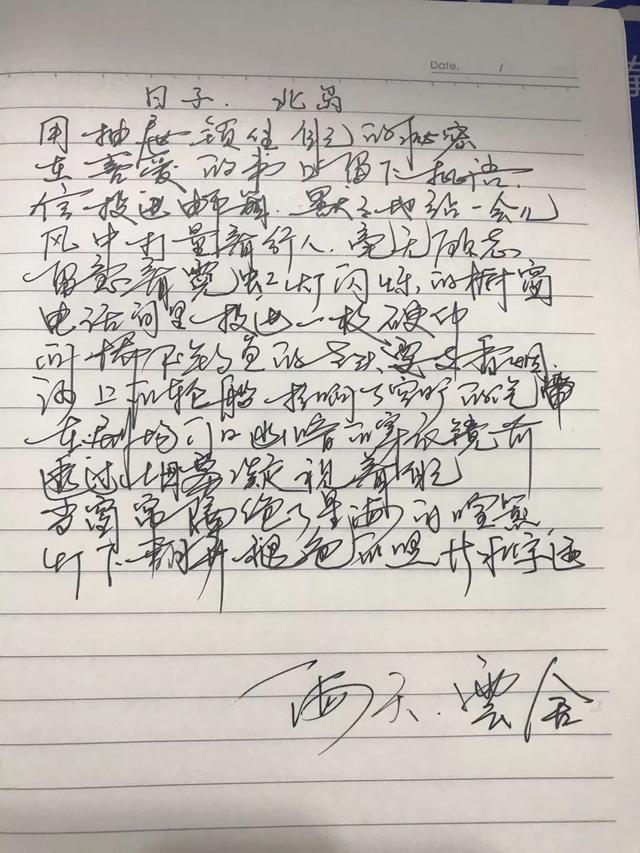 Date. /
日子. 北岛
用抽屉锁住自己的秘密
在喜爱的书上留下批语.
信投进邮箱.默々地站一会儿
风中打量着行人.毫无顾忌
留意着霓虹灯闪烁的橱窗
电话间里投进一枚硬币
向桥下钓鱼的老头要支香烟
河上的轮船拉响了空旷的汽笛
在剧场门口幽暗的穿衣镜前
透过烟雾凝视着自己
当窗帘隔绝了星海的喧嚣
灯下翻开褪色的照片和字迹
天.雲舍